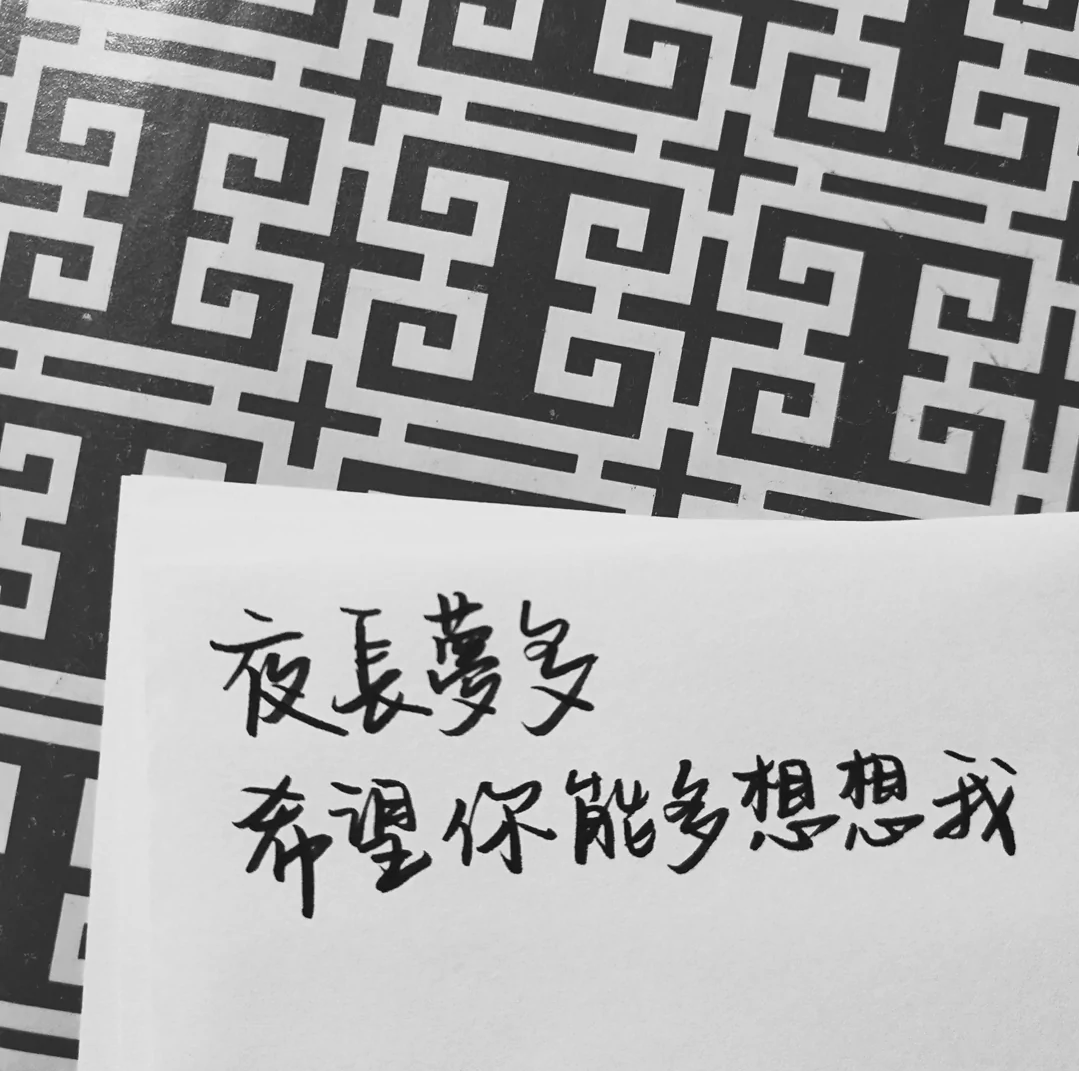 夜長夢多
希望你能多想想我